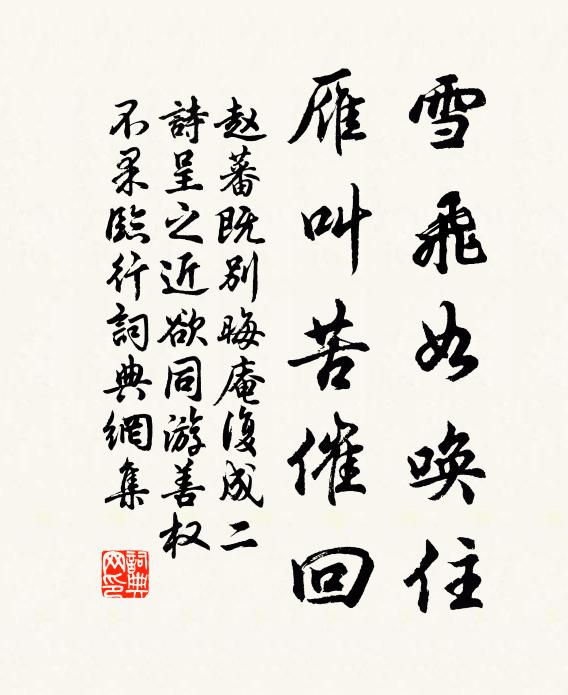 雪飛如喚住
雁叫苦催回
赵蕃既别晦庵復成二
詩呈之近欲同游善权
不果臨行詞典網集
詞典網印